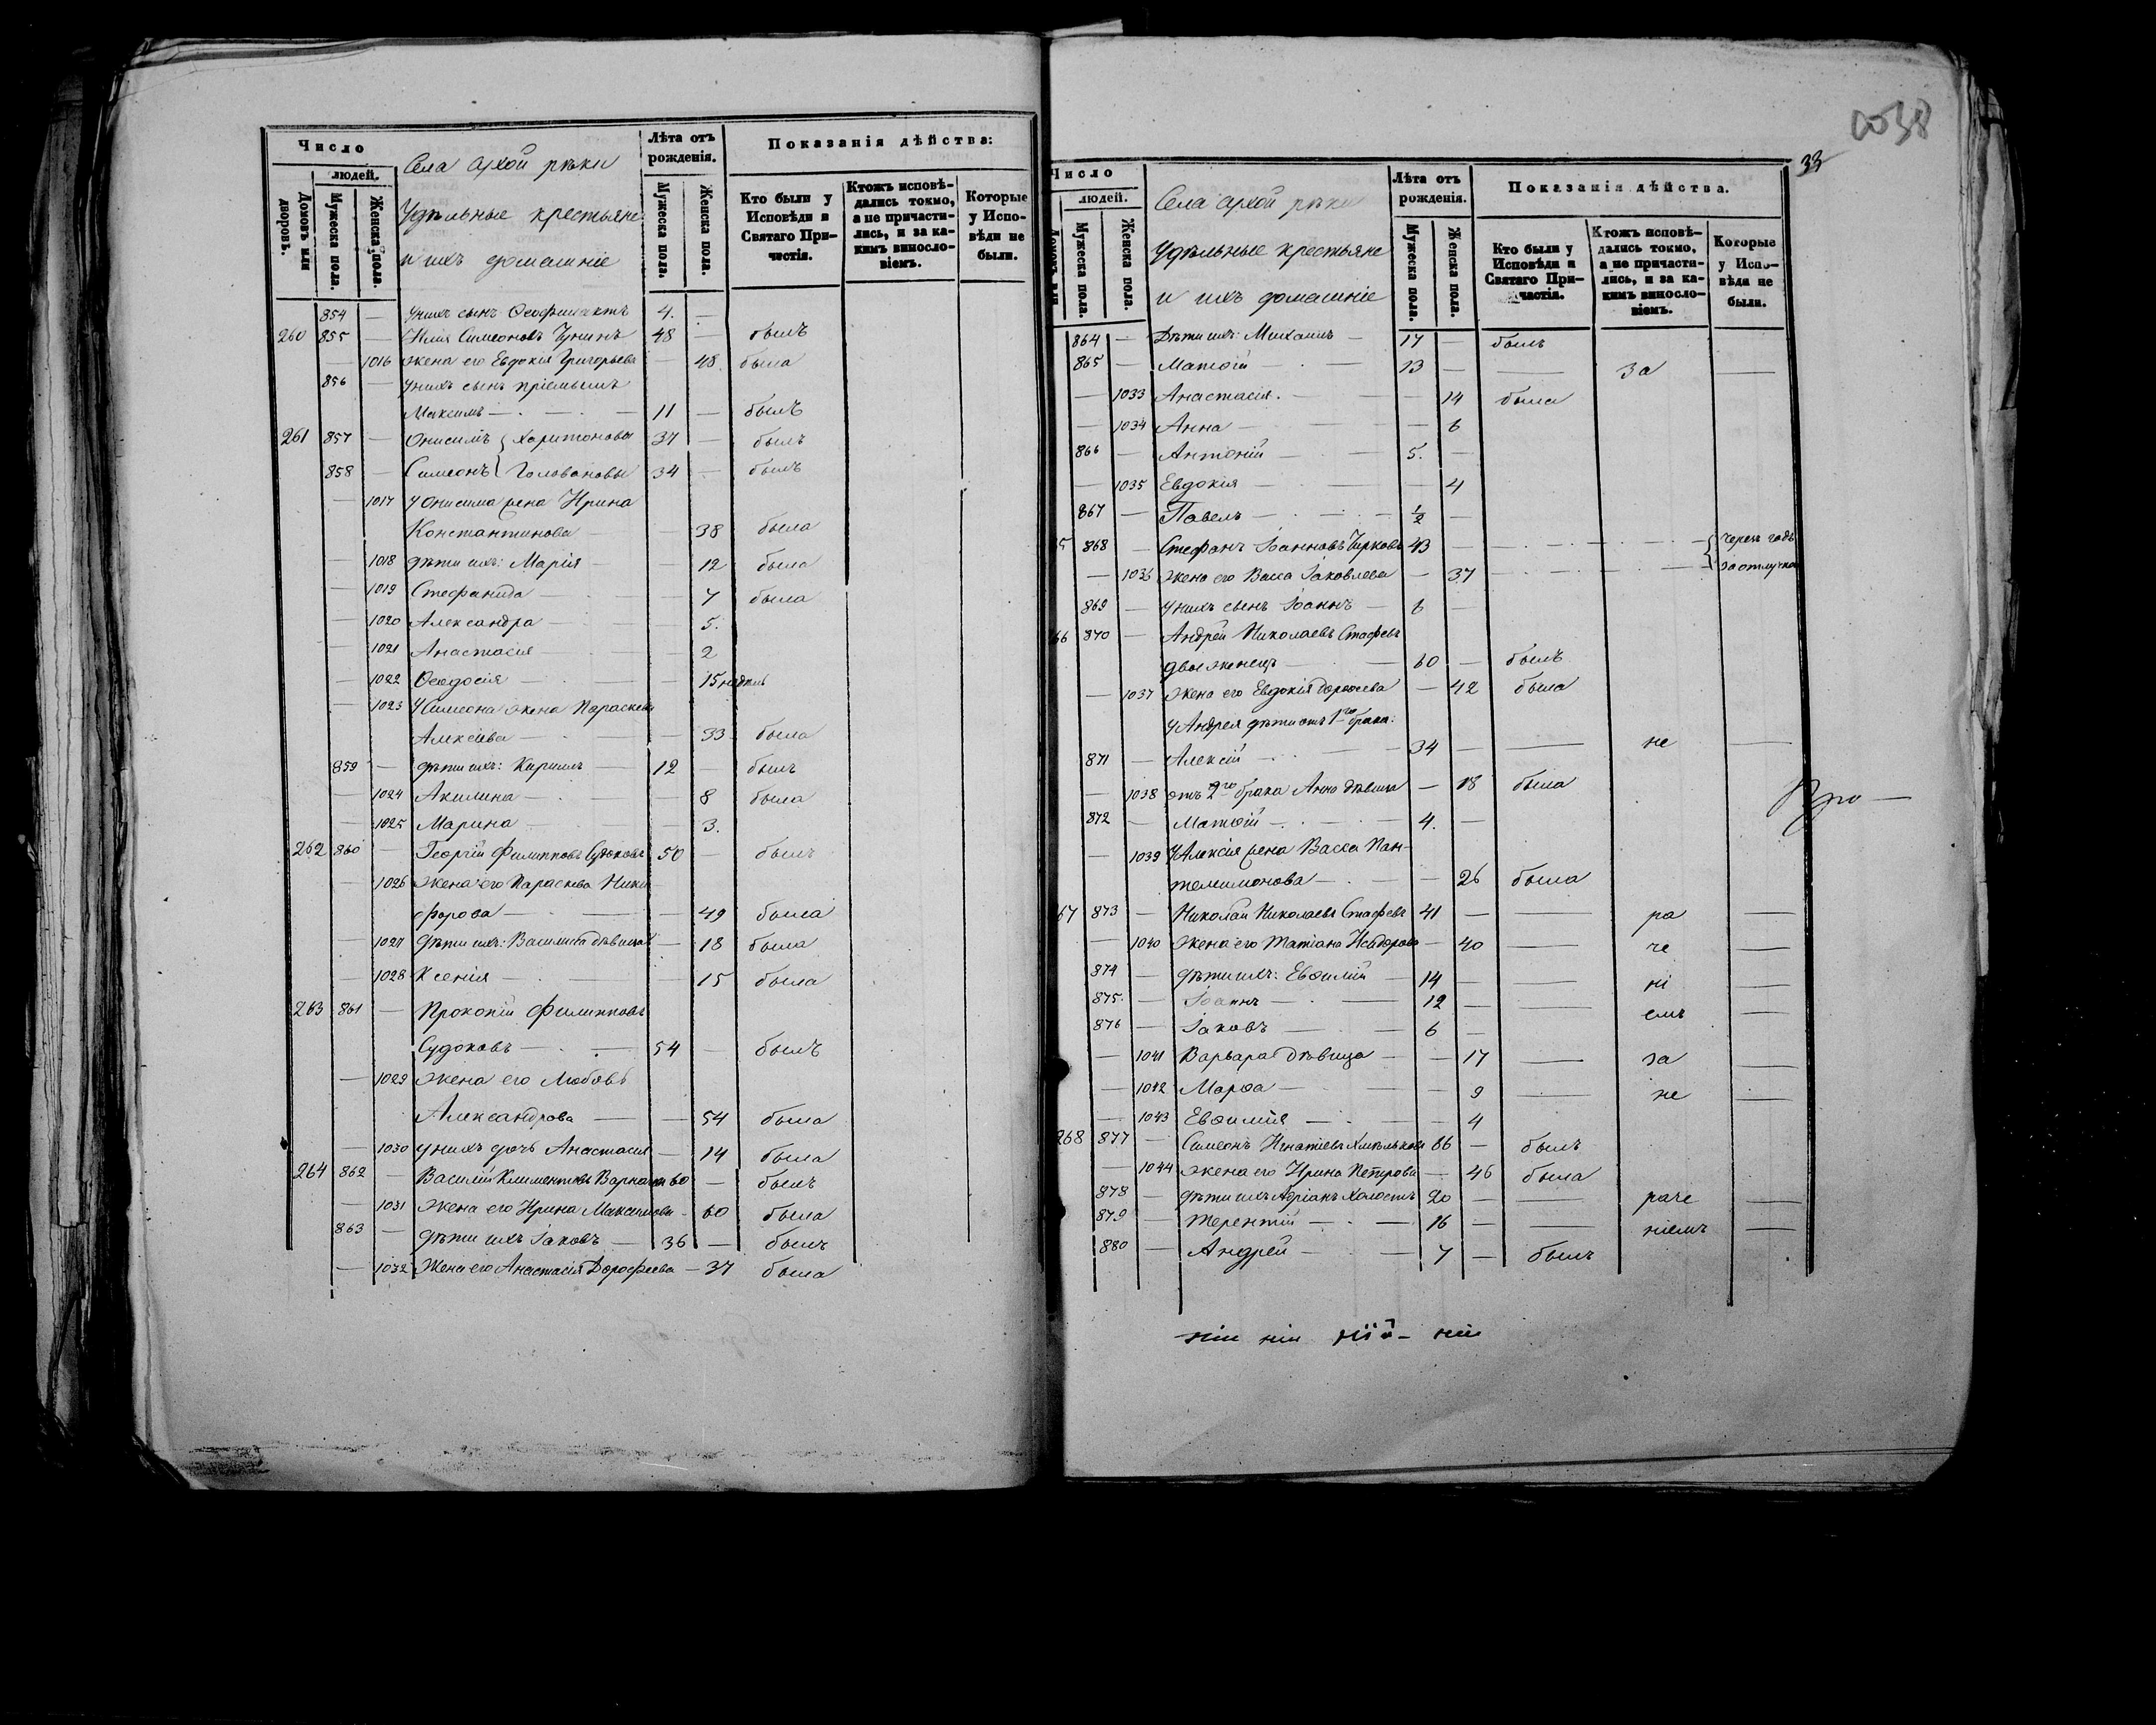 Число
людей.
Домовъ или дворовъ.
Мужеска пола.
Женска пола.
Села Сухой рѣки
Удѣльные крестьяне
и ихъ домашніе
Лѣта отъ рожденія.
Мужеска пола.
Женска пола.
Показанія дѣйства:
Кто были у Исповѣди и Святаго Причастія.
Ктожъ исповѣдались токмо, а не причастились, и за какимъ винословіемъ.
Которые у Исповѣди не были.
854 — у нихъ сынъ Ѳеофилактъ 4. —
260 855 — Илія Симеоновъ Чунинъ 48 — былъ
— 1016 жена его Евдокія Григорьева — 48. была
856 — у нихъ сынъ пріемышъ
Максимъ — 11 — былъ
261 857 — Онисимъ } Харитоновы 37 — былъ
858 — Симеонъ } Головановы 34 — былъ
— 1017 у Онисима жена Ирина
Константинова — 38 была
— 1018 дѣти ихъ: Марія — 12 была
— 1019 Стефанида — 7 была
— 1020 Александра — 5.
— 1021 Анастасія — 2
— 1022 Ѳеодосія — 15 недѣль
— 1023 У Симеона жена Параскева
Алексіева — 33 была
859 — дѣти ихъ: Кириллъ — 12 — былъ
— 1024 Акилина — 8 была
— 1025 Марина — 3.
262 860 — Георгій Филипповъ Судоковъ 50 — былъ
— 1026 жена его Параскева Ники-
форова — 49 была
— 1027 дѣти ихъ: Василиса дѣвица — 18 была
— 1028 Ксенія — 15 была
263 861 — Прокопій Филипповъ
Судоковъ — 54 — былъ
— 1029 жена его Любовь
Александрова — 54 была
— 1030 у нихъ дочь Анастасія — 14 была
264 862 — Василій Климентовъ 60 — былъ
— 1031 жена его Ирина Максимова — 60 была
863 — дѣти ихъ Іаковъ — 36 — былъ
— 1032 Жена его Анастасія Дорофеева — 37 была
0038
33
Число
людей.
Мужеска пола.
Женска пола.
Села Сухой рѣки
Удѣльные крестьяне
и ихъ домашніе
Лѣта отъ рожденія.
Мужеска пола.
Женска пола.
Показанія дѣйства.
Кто были у Исповѣди и Святаго Причастія.
Ктожъ исповѣдались токмо, а не причастились, и за какимъ винословіемъ.
Которые у Исповѣди не были.
864 — Дѣти ихъ: Михаилъ — 17 — былъ
865 — Матѳій — 13 — — за —
— 1033 Анастасія. — 14 была
— 1034 Анна — 6
866 — Антоній — 5. —
— 1035 Евдокія — 4
867 — Павелъ — 1/2 —
5 868 — Стефанъ Іоанновъ Чирковъ 43 — { черезъ годъ
— 1036 жена его Васса Іаковлева — 37 — { за отлучкою
869 — у нихъ сынъ Іоаннъ — 6 —
66 870 — Андрей Николаевъ Стафевъ
двоеженецъ — 60 — былъ
— 1037 жена его Евдокія Дороѳеева — 42 была
У Андрея дѣти отъ 1го брака:
871 — Алексій — 34 — — не —
— 1038 отъ 2го брака Анна дѣвица — 18 была
872 — Матѳій — 4. —
— 1039 У Алексія жена Васса Пан-
телимонова — 26 была
67 873 — Николай Николаевъ Стафевъ 41 — — ра —
— 1040 жена его Татіана Исидорова — 40 — че —
874 — дѣти ихъ: Евѳимій — 14 — — ні —
875. — Іоаннъ — 12 — — емъ —
876 — Іаковъ — 6 —
— 1041 Варвара дѣвица — 17 — за —
— 1042 Марѳа — 9 — не —
— 1043 Евѳимія — 4
268 877 — Симеонъ Игнатіевъ Хмѣльковъ 86 — былъ
— 1044 жена его Ирина Петрова — 46 была
878 — дѣти ихъ Адріанъ Холостъ 20 — — раче —
879 — Терентій — 16 — — ніемъ —
880 — Андрей — 7 — былъ